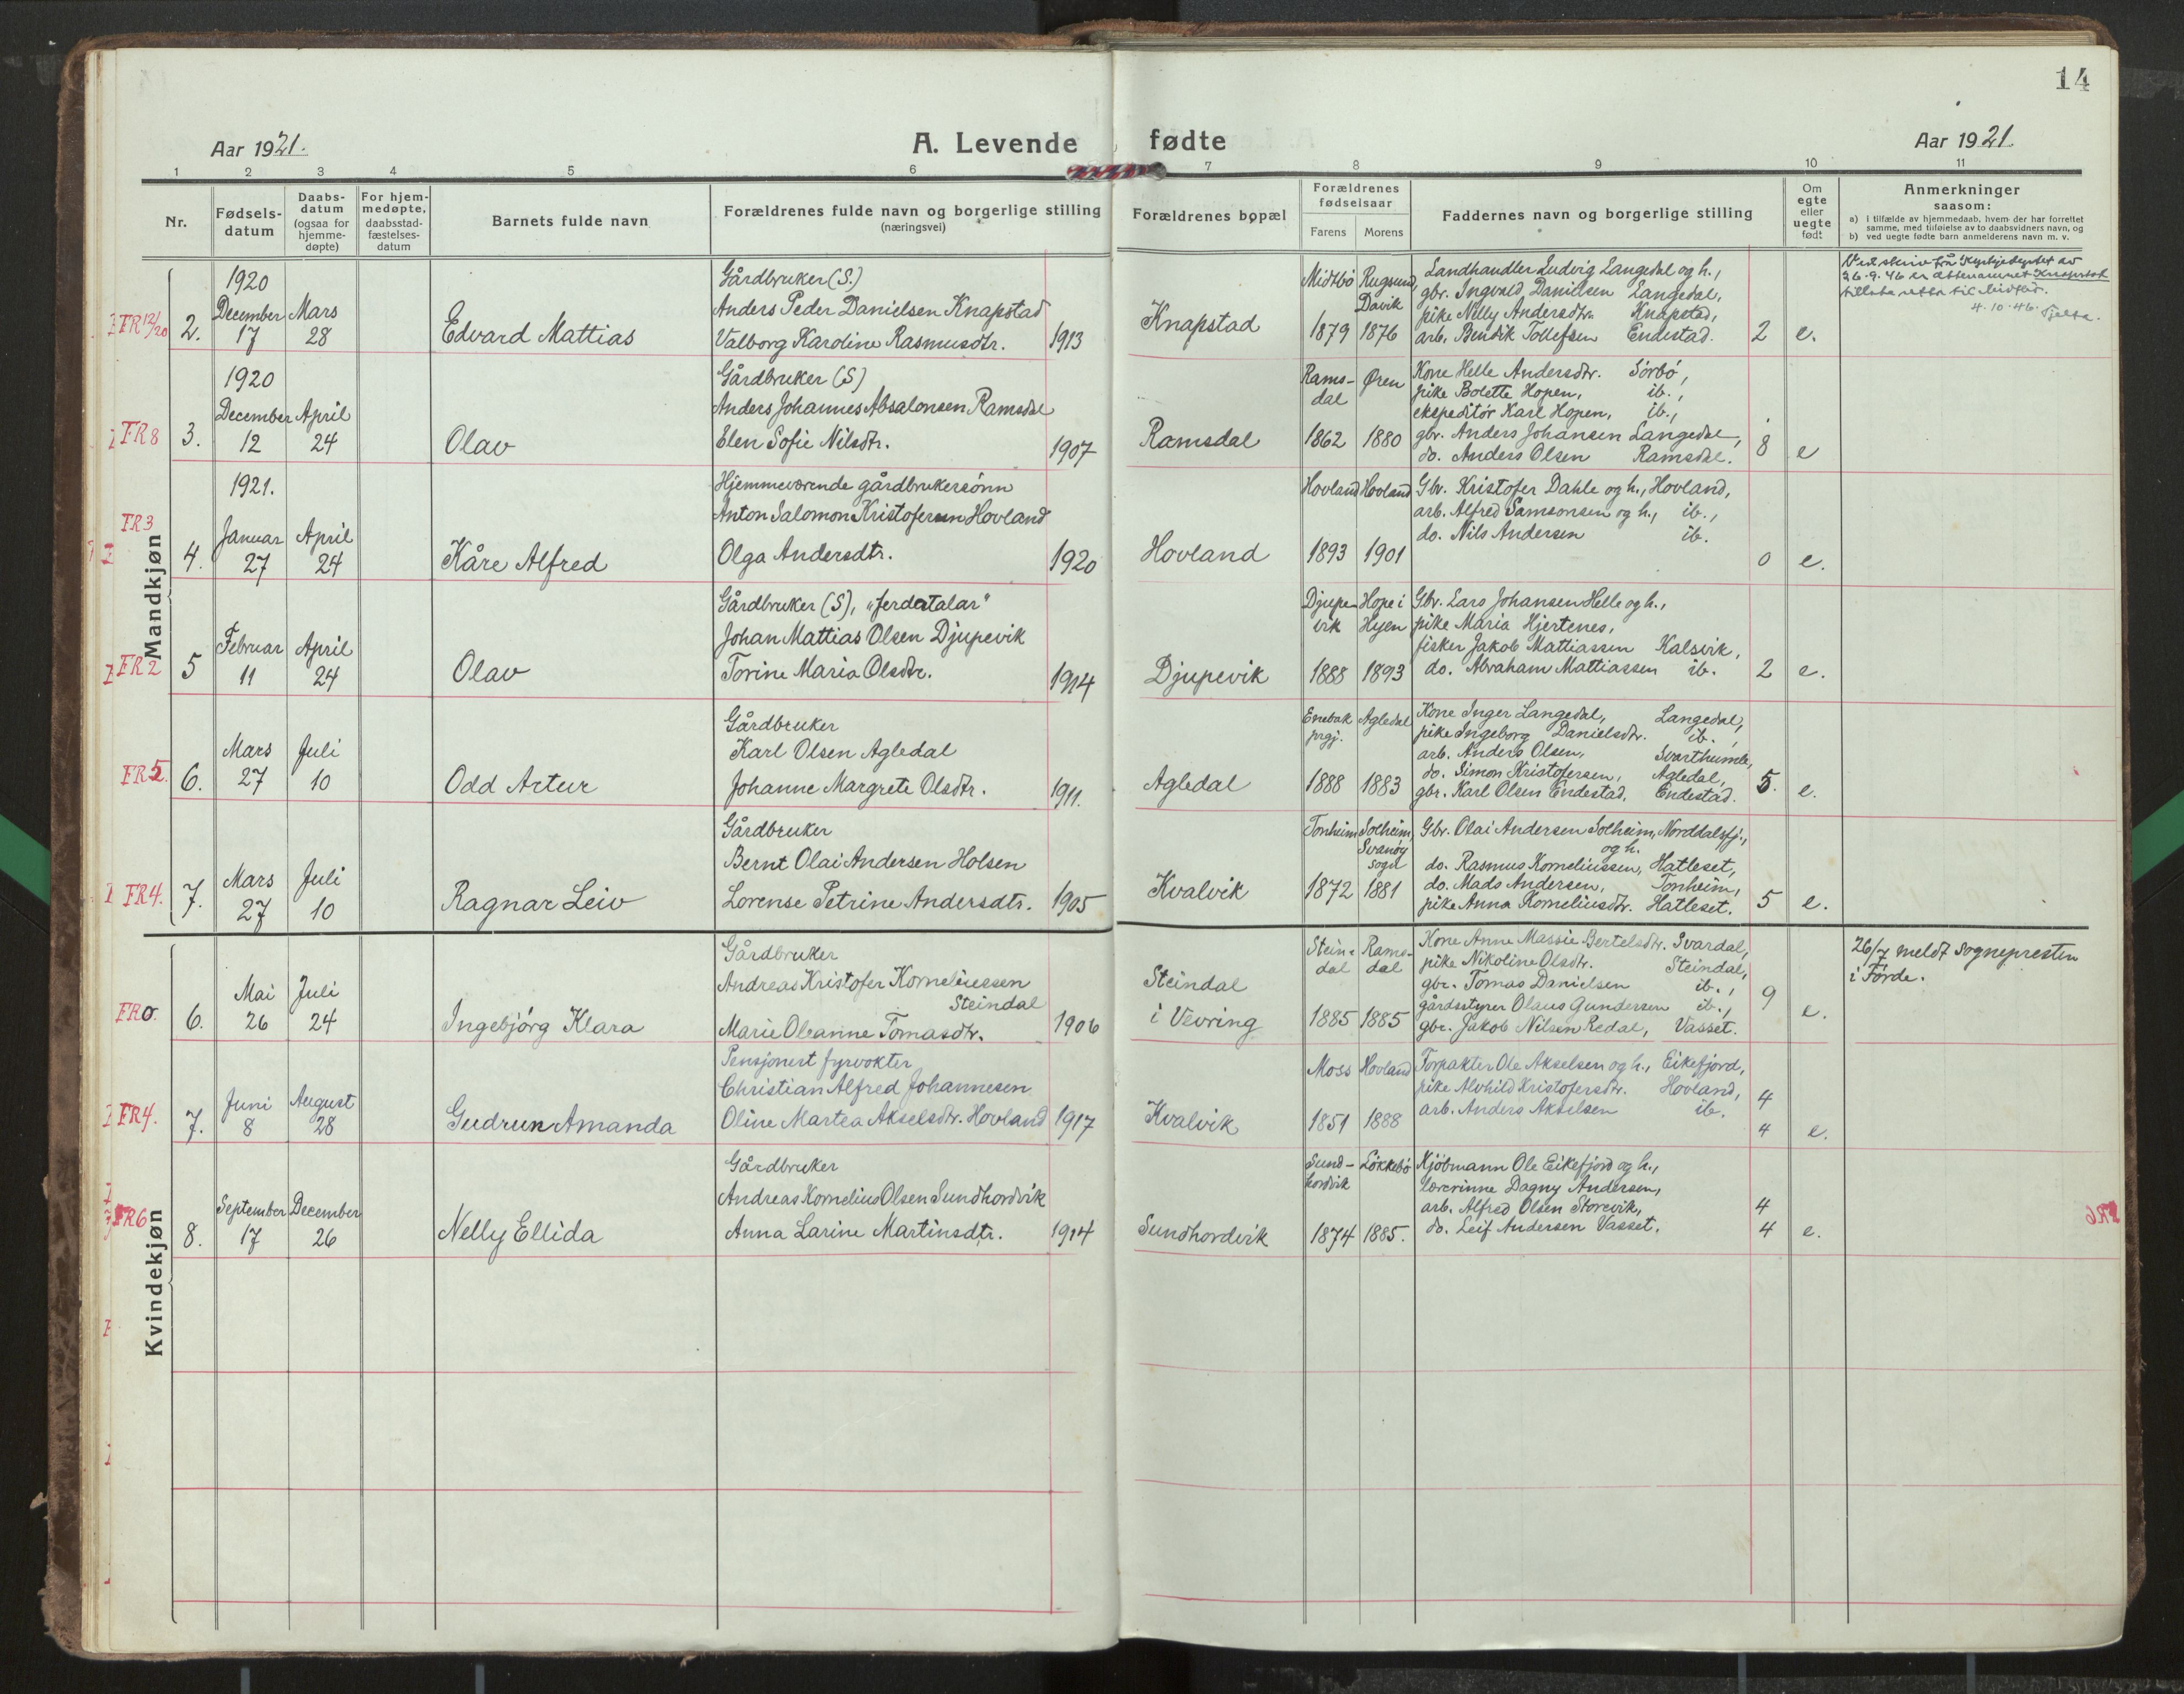 14
Aar 1921.
A. Levende fødte
Aar 1921
1 2 3 4 5 6 7 8 9 10 11
Nr.
Fødsels-
datum
Daabs-
datum
(ogsaa for
hjemme-
døpte)
For hjem-
medøpte,
daabsstad-
fæstelses-
datum
Barnets fulde navn
Forældrenes fulde navn og borgerlige stilling
(næringsvei)
Forældrenes bopæl
Forældrenes
fødselsaar
Farens Morens
Faddernes navn og borgerlige stilling
Om
egte
eller
uegte
født
Anmerkninger
saasom:
a) i tilfælde av hjemmedaab, hvem der har forrettet
samme, med tilføielse av to daabsvidners navn, og
b) ved uegte fødte barn anmelderens navn m. v.
Mandkjøn
FR 12/20
2.
1920
December
17
Mars
28
Edvard Mattias
Gårdbruker (S.)
Anders Peder Danielsen Knapstad
Valborg Karoline Rasmusdtr.
1913
Knapstad
Midtbö
1879
Rugsund,
Davik
1876
Landhandler Ludvig Langedal og h.,
gbr. Ingvald Danielsen Langedal,
pike Nelly Andersdtr. Knapstad,
arb. Bendik Tollefsen Endestad.
2
e.
26.9.46 er etternamnet Knapstad
4.10.46.
FR 8
3.
1920
December
12
April
24
Olav
Gårdbruker (S)
Anders Johannes Absalonsen Ramsdal
Elen Sofie Nilsdtr.
1907
Ramsdal
Rams-
dal
1862
Øren
1880
Kone Helle Andersdtr. Sörbö,
pike Bolette Hopen, ib.,
ekspeditör Karl Hopen, ib.,
gbr. Anders Johansen Langedal,
do. Anders Olsen Ramsdal.
8
e
FR 3
4.
1921.
Januar
27
April
24
Kåre Alfred
Hjemmeværende gårdbrukersönn
Anton Salomon Kristofersen Hovland
Olga Andersdtr.
1920
Hovland
Hovland
1893
Hovland
1901
Gbr. Kristofer Dahle og h., Hovland,
arb. Alfred Samsonsen og h., ib.,
do. Nils Andersen ib.
0
e.
FR 2
5
Februar
11
April
24
Olav
Gårdbruker (S), "ferdatalar"
Johan Mattias Olsen Djupevik
Torine Maria Olsdtr.
1914
Djupevik
Djupe-
vik
1888
Hope i
Hyen
1893
Gbr. Lars Johansen Helle og h.,
pike Maria Hjertenes,
fisker Jakob Mattiassen Kalsvik,
do. Abraham Mattiassen ib.
2
e.
FR 5.
6.
Mars
27
Juli
10
Odd Artur
Gårdbruker
Karl Olsen Agledal
Johanne Margrete Olsdtr.
1911.
Agledal
Enebak
prgj.
1888
Agledal
1883
Kone Inger Langedal, Langedal,
pike Ingeborg Danielsdtr. ib.,
arb. Anders Olsen, Svarthumle,
do. Simon Kristofersen, Agledal,
gbr. Karl Olsen Endestad, Endestad.
5.
e.
FR 4.
7.
Mars
27
Juli
10
Ragnar Leiv
Gårdbruker
Bernt Olai Andersen Holsen
Lorense Petrine Andersdtr.
1905
Kvalvik
Tonheim
1872
Solheim,
Svanöy
sogn
1881
Gbr. Olai Andersen Solheim, Norddalsfj.,
og h.
do. Rasmus Korneliussen, Hatleset,
do. Mads Andersen, Tonheim,
pike Anna Korneliusdtr. Hatleset.
5
e.
Kvindekjøn
FR 0.
6.
Mai
26
Juli
24
Ingebjörg Klara
Gårdbruker
Andreas Kristofer Korneliussen
Steindal
Marie Oleanne Tomasdtr.
1906
Steindal
i Vevring
Stein-
dal
1885
Rams-
dal
1885
Kone Anne Massie Bertelsdtr. Svardal,
pike Nikoline Olsdtr. Steindal,
gbr. Tomas Danielsen ib.,
gårdsstyrer Olaus Gundersen ib.,
gbr. Jakob Nilsen Redal, Vasset.
9
e.
26/7 meldt sognepresten
i Förde.
FR 4.
7.
Juni
8
August
28
Gudrun Amanda
Pensjonert fyrvokter
Christian Alfred Johannesen
Oline Martea Akselsdtr. Hovland
1917
Kvalvik
Moss
1851
Hovland
1888
Forpakter Ole Akselsen og h., Eikefjord,
pike Alvhild Kristofersdtr. Hovland,
arb. Anders Akselsen ib.
4
4
e.
FR 6
8.
September
17
December
26
Nelly Ellida
Gårdbruker
Andreas Kornelius Olsen Sundhordvik
Anna Larine Martinsdtr.
1914
Sundhordvik
Sund-
hordvik
1874
Lökkebö
1885.
Kjöbmann Ole Eikefjord og h.,
lærerinne Dagny Andersen,
arb. Alfred Olsen Storevik,
do. Leif Andersen Vasset.
4
4
e.